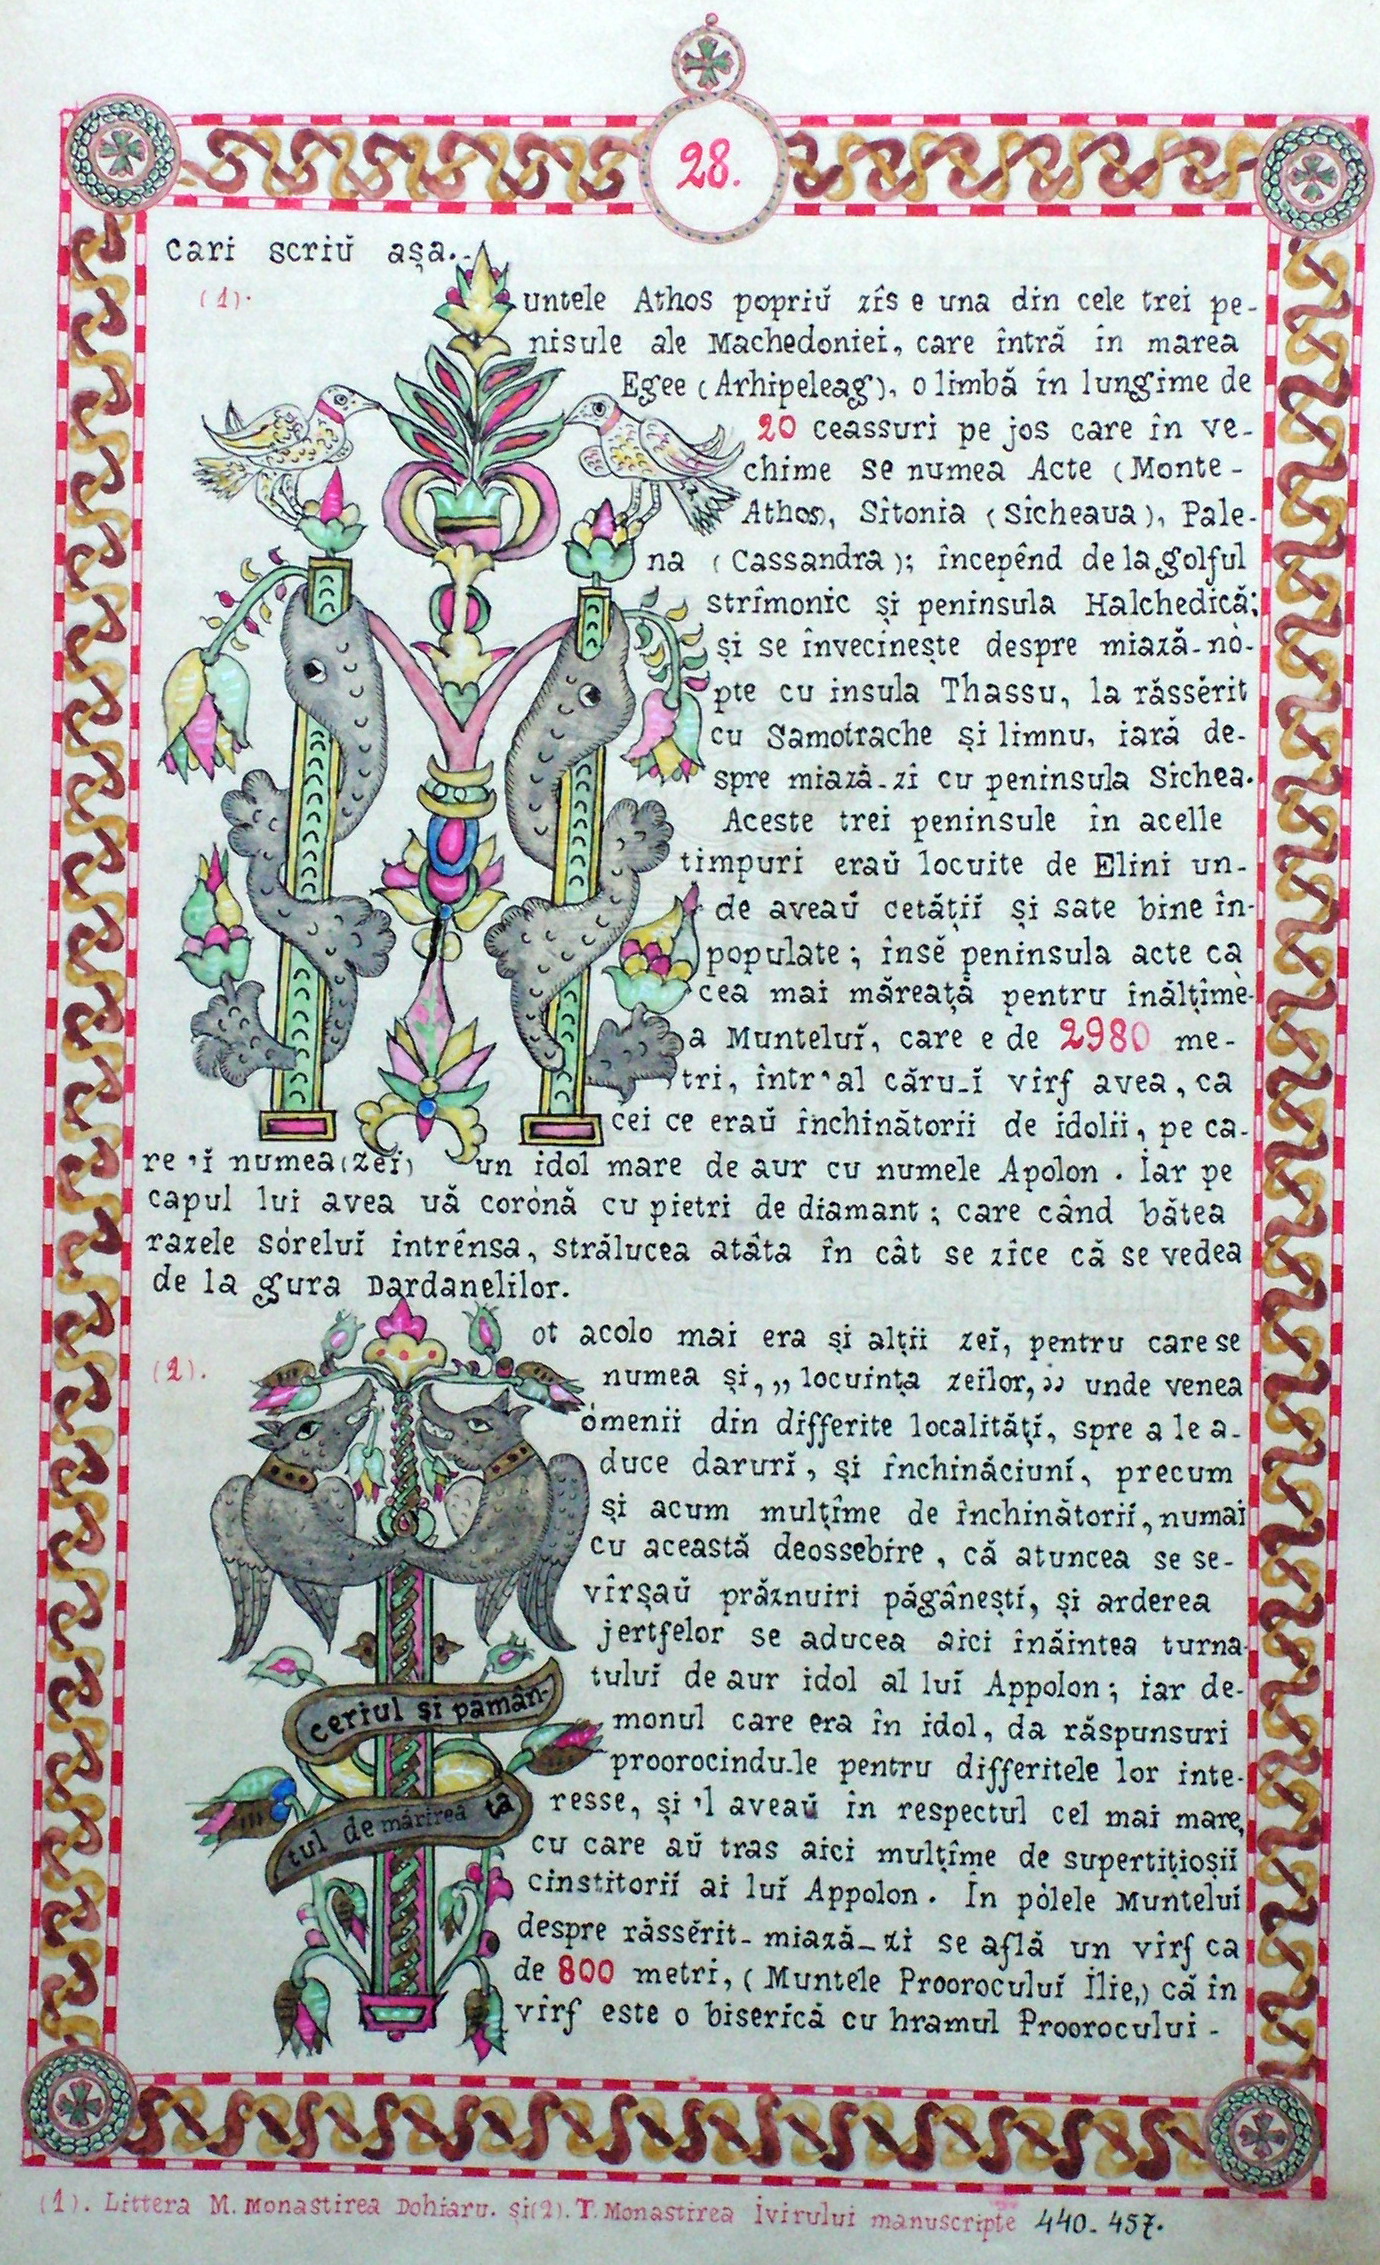 28.
cari scriŭ așa..
(1).
untele Athos popriŭ zîs e una din cele trei pe-
nisule ale Machedoniei, care întră în marea
Egee (Arhipeleag), o limbă în lungime de
20 ceassuri pe jos care în ve-
chime se numea Acte (Monte-
Athos), Sitonia (Sicheaua), Pale-
na (Cassandra); începênd de la golful
strîmonic și peninsula Halchedică;
și se învecinește despre miază-nò-
pte cu insula Thassu, la răssĕrit
cu Samotrache și limnu, iară de-
spre miază-zi cu peninsula Sichea.
Aceste trei peninsule în acelle
timpuri eraŭ locuite de Elini un-
de aveaŭ cetățiĭ și sate bine în-
populate; însĕ peninsula acte ca
cea mai măreață pentru înălțîme-
a Munteluĭ, care e de 2980 me-
tri, într'al căru-ĭ vîrf avea, ca
cei ce eraŭ închinătorii de idolii, pe ca-
re 'ĭ numea (zeĭ) un idol mare de aur cu numele Apolon. Iar pe
capul lui avea uă corònă cu pietri de diamant; care când bătea
razele sòreluĭ întrênsa, strălucea atâta în cât se zîce că se vedea
de la gura Dardanelilor.
(2).
ot acolo mai era și alții zeĭ, pentru care se
numea și, „locuința zeilor," unde venea
òmenii din differite localitățĭ, spre a le a-
duce darurĭ, și închinăciunĭ, precum
și acum mulțîme de închinătoriĭ, numai
cu această deossebire, că atuncea se se-
vîrșaŭ prăznuiri păgâneștĭ, și arderea
jertfelor se aducea aici înăintea turna-
tuluĭ de aur idol al luĭ Appolon; iar de-
monul care era în idol, da răspunsuri
proorocindu-le pentru differitele lor inte-
resse, și 'l aveaŭ în respectul cel mai mare,
cu care aŭ tras aici mulțîme de supertițioșiĭ
cinstitoriĭ ai luĭ Appolon. În pòlele Munteluĭ
despre răssĕrit-miază-zi se află un vîrf ca
de 800 metri, (Muntele Prooroculuĭ Ilie,) că în
vîrf este o biserică cu hramul Proorocului-
ceriul și pămân-
tul de mărirea ta
(1). Littera M. Monastirea Dohiaru. și (2). T. Monastirea Ivirului manuscripte 440-457.